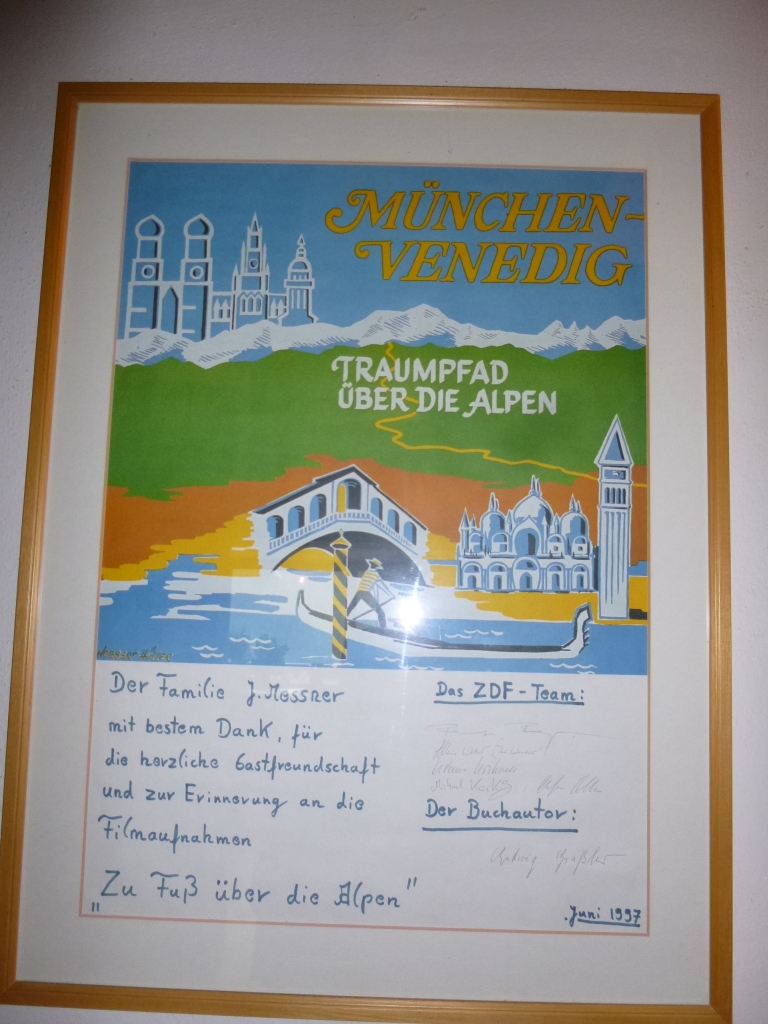 MÜNCHEN-
VENEDIG
TRAUMPFAD
ÜBER DIE ALPEN
Der Familie J. Messner
mit bestem Dank, für
die herzliche Gastfreundschaft
und zur Erinnerung an die
Filmaufnahmen
"Zu Fuß über die Alpen"
Das ZDF-Team:
Der Buchautor:
Juni 1997